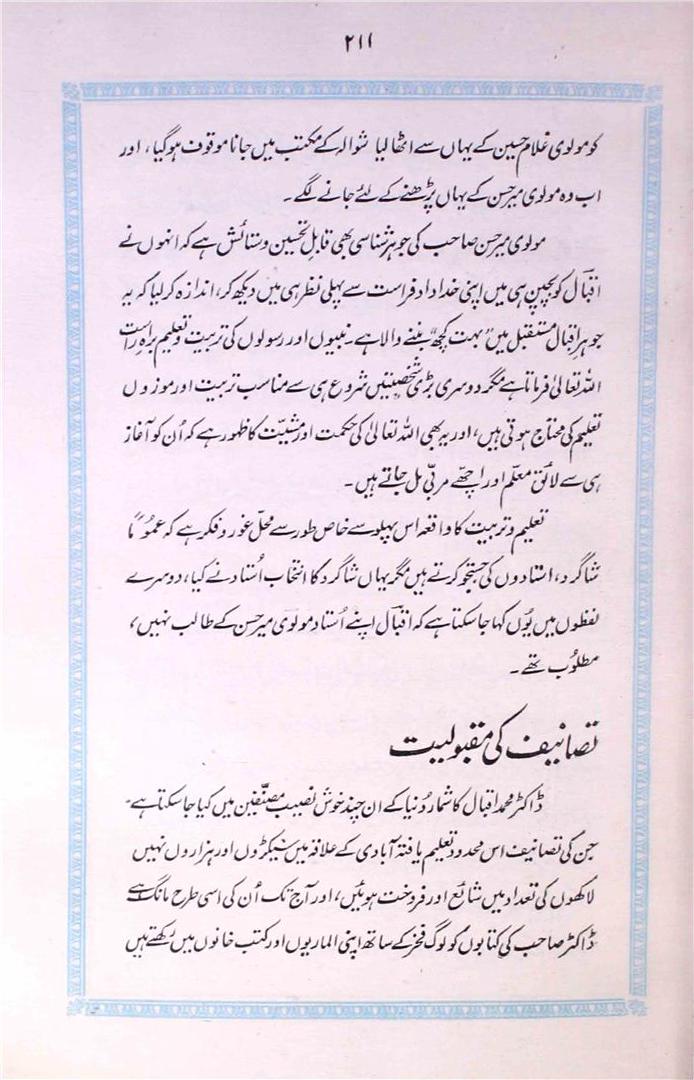 ۲۱۱
کو مولوی غلام حسین کے یہاں سے اٹھا لیا شوالہ کے مکتب میں جانا موقوف ہوگیا، اور
اب وہ مولوی میر حسن کے یہاں پڑھنے کے لئے جانے لگے۔
مولوی میر حسن صاحب کی جوہر شناسی بھی قابلِ تحسین و ستائش ہے کہ انہوں نے
اقبالؔ کو بچپن ہی میں اپنی خداداد فراست سے پہلی نظر ہی میں دیکھ کر، اندازہ کر لیا کہ یہ
جوہرِ اقبال مستقبل میں "بہت کچھ" بننے والا ہے۔ نبیوں اور رسولوں کی تربیت و تعلیم براہِ راست
اللہ تعالیٰ فرماتا ہے مگر دوسری بڑی شخصیتیں شروع ہی سے مناسب تربیت اور موزوں
تعلیم کی محتاج ہوتی ہیں، اور یہ بھی اللہ تعالیٰ کی حکمت اور مشیّت کا ظہور ہے کہ اُن کو آغاز
ہی سے لائق معلّم اور اچھے مربّی مل جاتے ہیں۔
تعلیم و تربیت کا واقعہ اس پہلو سے خاص طور سے محلِّ غور و فکر ہے کہ عموُماً
شاگرد، استادوں کی جستجو کرتے ہیں مگر یہاں شاگرد کا انتخاب اُستاد نے کیا، دوسرے
لفظوں میں یوُں کہا جا سکتا ہے کہ اقبالؔ اپنے اُستاد مولوی میر حسن کے طالب نہیں،
مطلوُب تھے۔
تصانیف کی مقبولیت
ڈاکٹر محمد اقبال کا شمار دُنیا کے ان چند خوش نصیب مصنّفین میں کیا جا سکتا ہے۔
جن کی تصانیف اس محدود تعلیم یافتہ آبادی کے علاقہ میں سیکڑوں اور ہزاروں نہیں
لاکھوں کی تعداد میں شائع اور فروخت ہوئیں، اور آج تک اُن کی اسی طرح مانگ ہے
ڈاکٹر صاحب کی کتابوں کو لوگ فخر کے ساتھ اپنی الماریوں اور کتب خانوں میں رکھتے ہیں